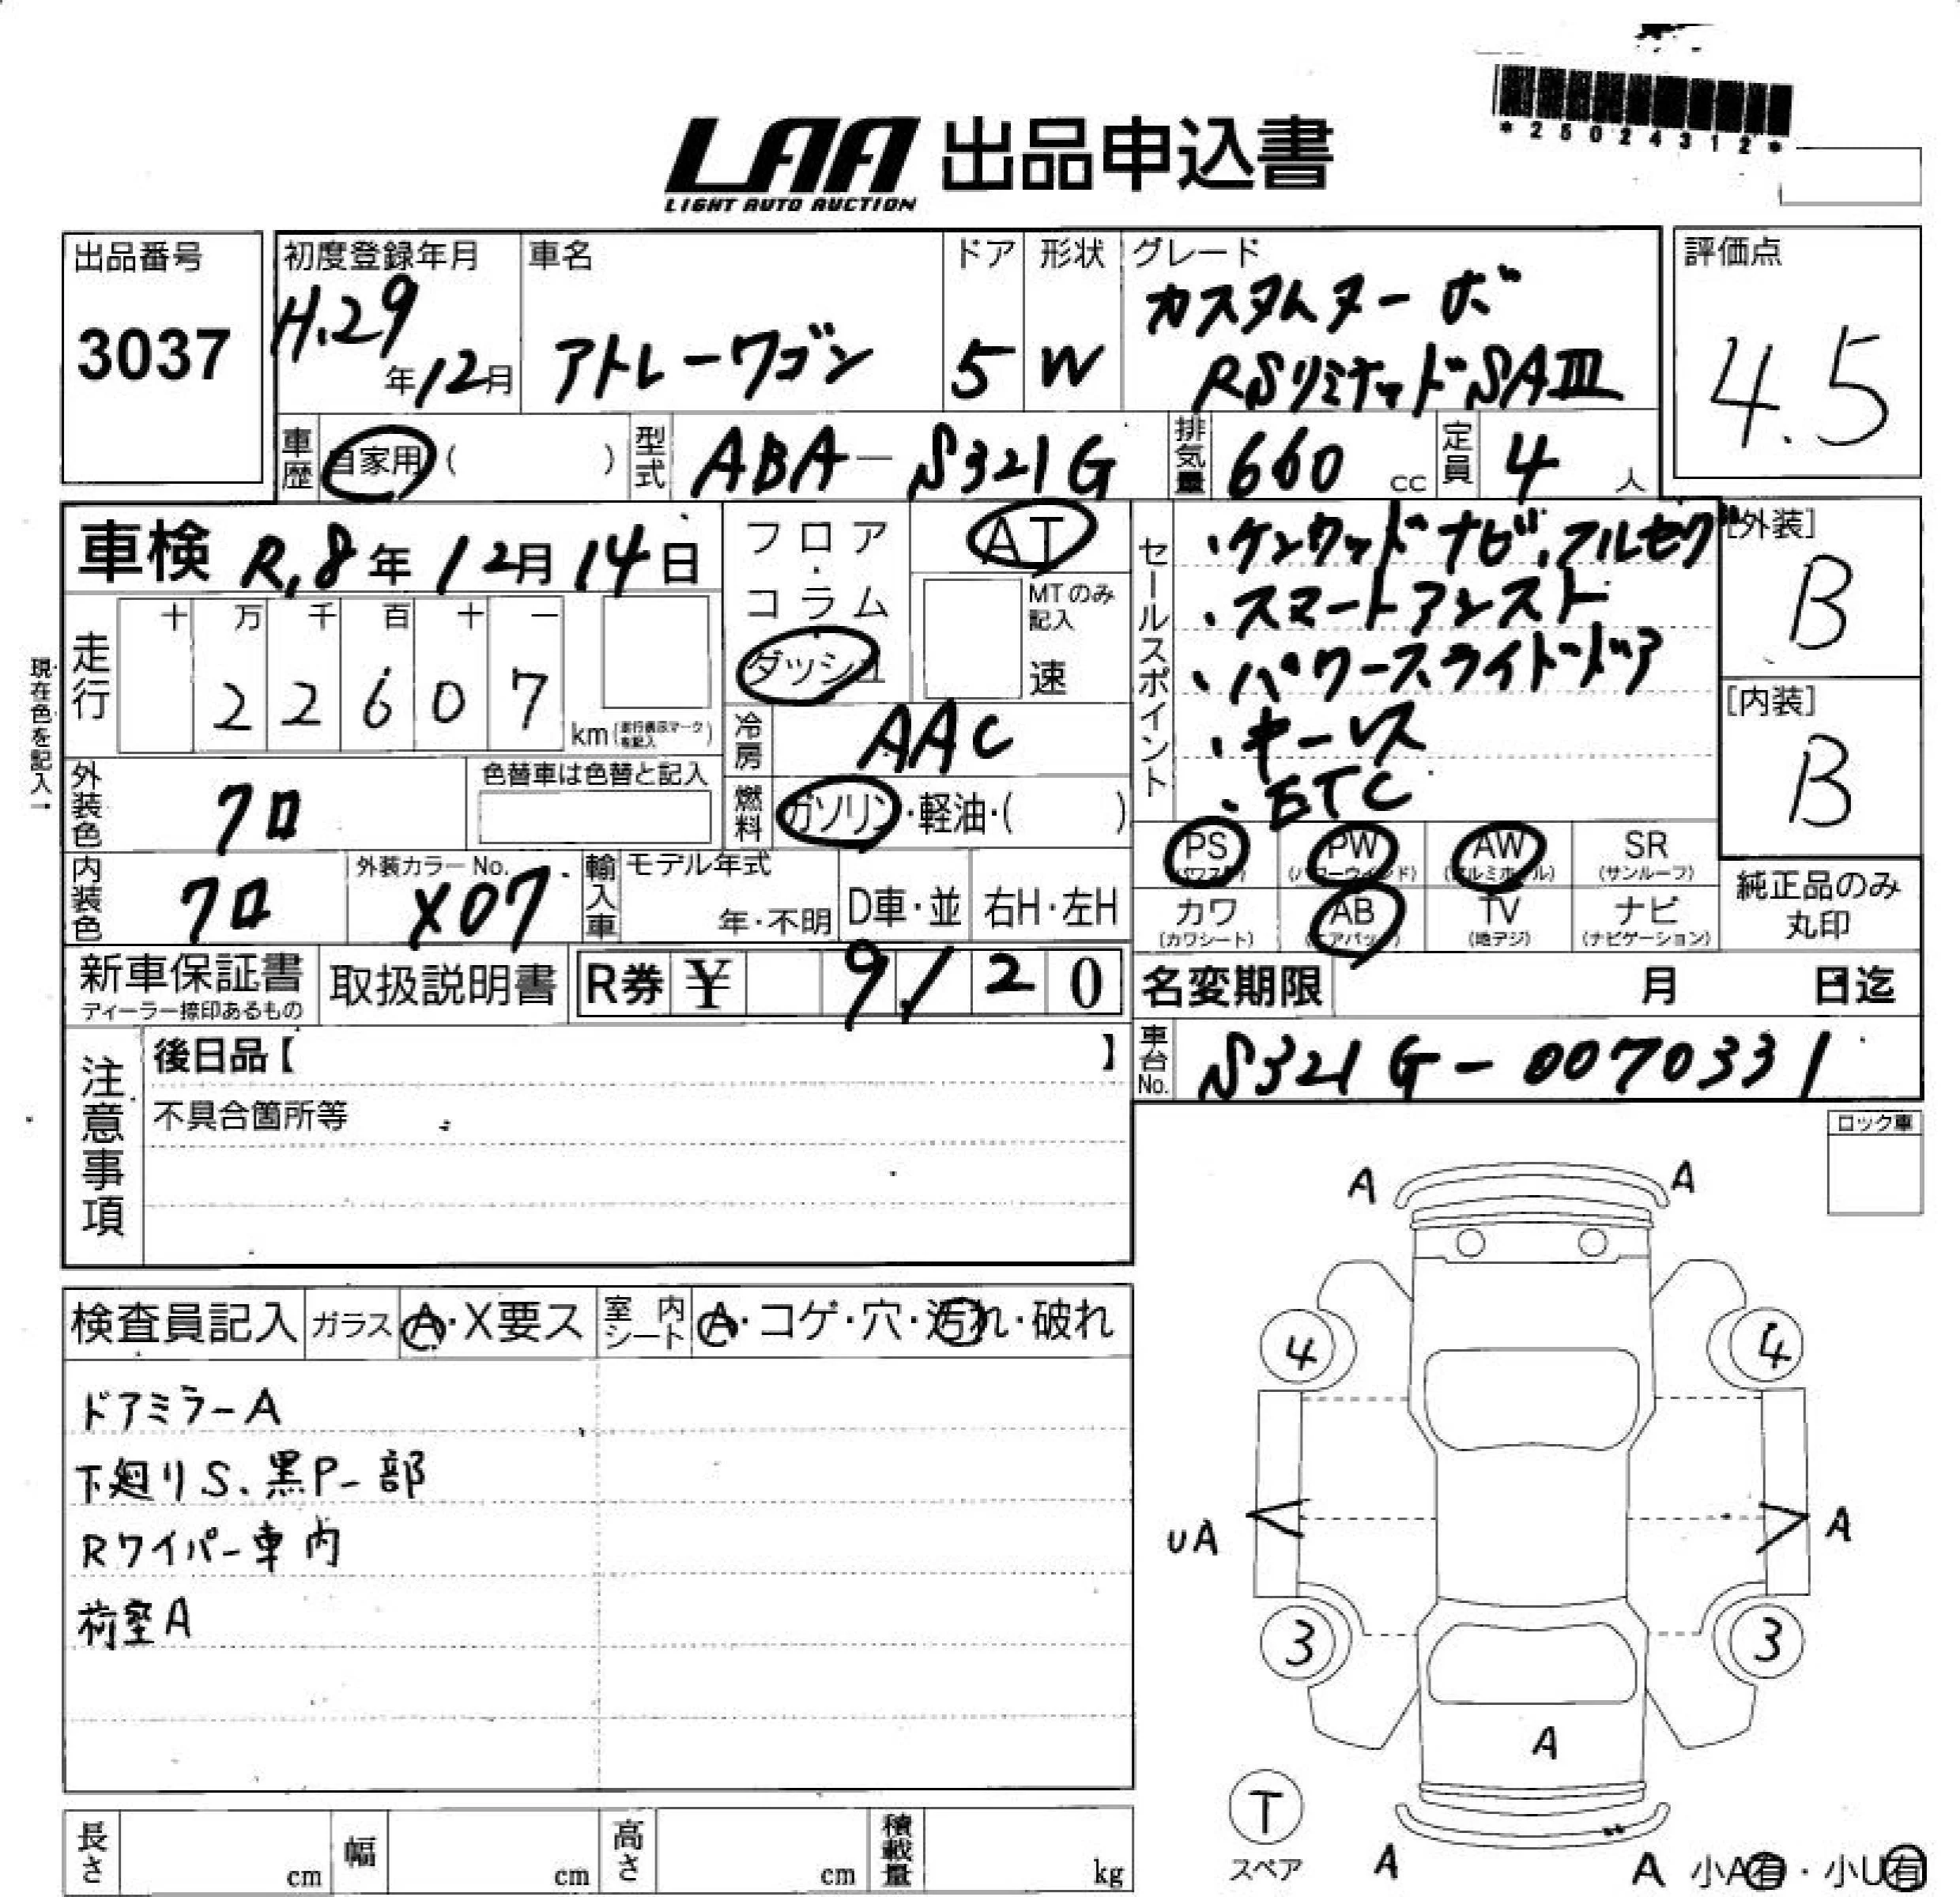 *25024312*
LAA 出品申込書
LIGHT AUTO AUCTION
出品番号
3037
初度登録年月
H.29年12月
車名
アトレーワゴン
ドア
5
形状
W
グレード
カスタムターボ
RSリミテッドSAⅢ
評価点
4.5
車歴 自家用( )
型式 ABA-S321G
排気量 660 cc
定員 4 人
車検 R.8年12月14日
フロア・コラム
ダッシュ
AT
MTのみ記入
速
セールスポイント
・ケンウッドナビ、フルセグ
・スマートアシスト
・パワースライドドア
・キーレス
・ETC
[外装]
B
[内装]
B
現在色を記入→
走行
十 万 千 百 十 一
2 2 6 0 7
km(走行表示マークを記入)
冷房 AAC
外装色 クロ
色替車は色替と記入
燃料 ガソリン・軽油・( )
内装色 クロ
外装カラーNo.
X07
輸入車
モデル年式
年・不明
D車・並
右H・左H
PS (パワステ)
PW (パワーウインド)
AW (アルミホイル)
SR (サンルーフ)
カワ (カワシート)
AB (エアバッグ)
TV (地デジ)
ナビ (ナビゲーション)
純正品のみ
丸印
新車保証書
ディーラー捺印あるもの
取扱説明書
R券 ¥ 9,120
名変期限 月 日迄
注意事項
後日品【 】
不具合箇所等
車台No. S321G-0070331
ロック車
検査員記入
ガラス A・X要ス
室内シート A・コゲ・穴・汚れ・破れ
ドアミラーA
下廻りS、黒P一部
Rワイパー車内
荷室A
A A
4 4
UA A
3 3
A
T
スペア
A A
小A有・小U有
長さ cm
幅 cm
高さ cm
積載量 kg